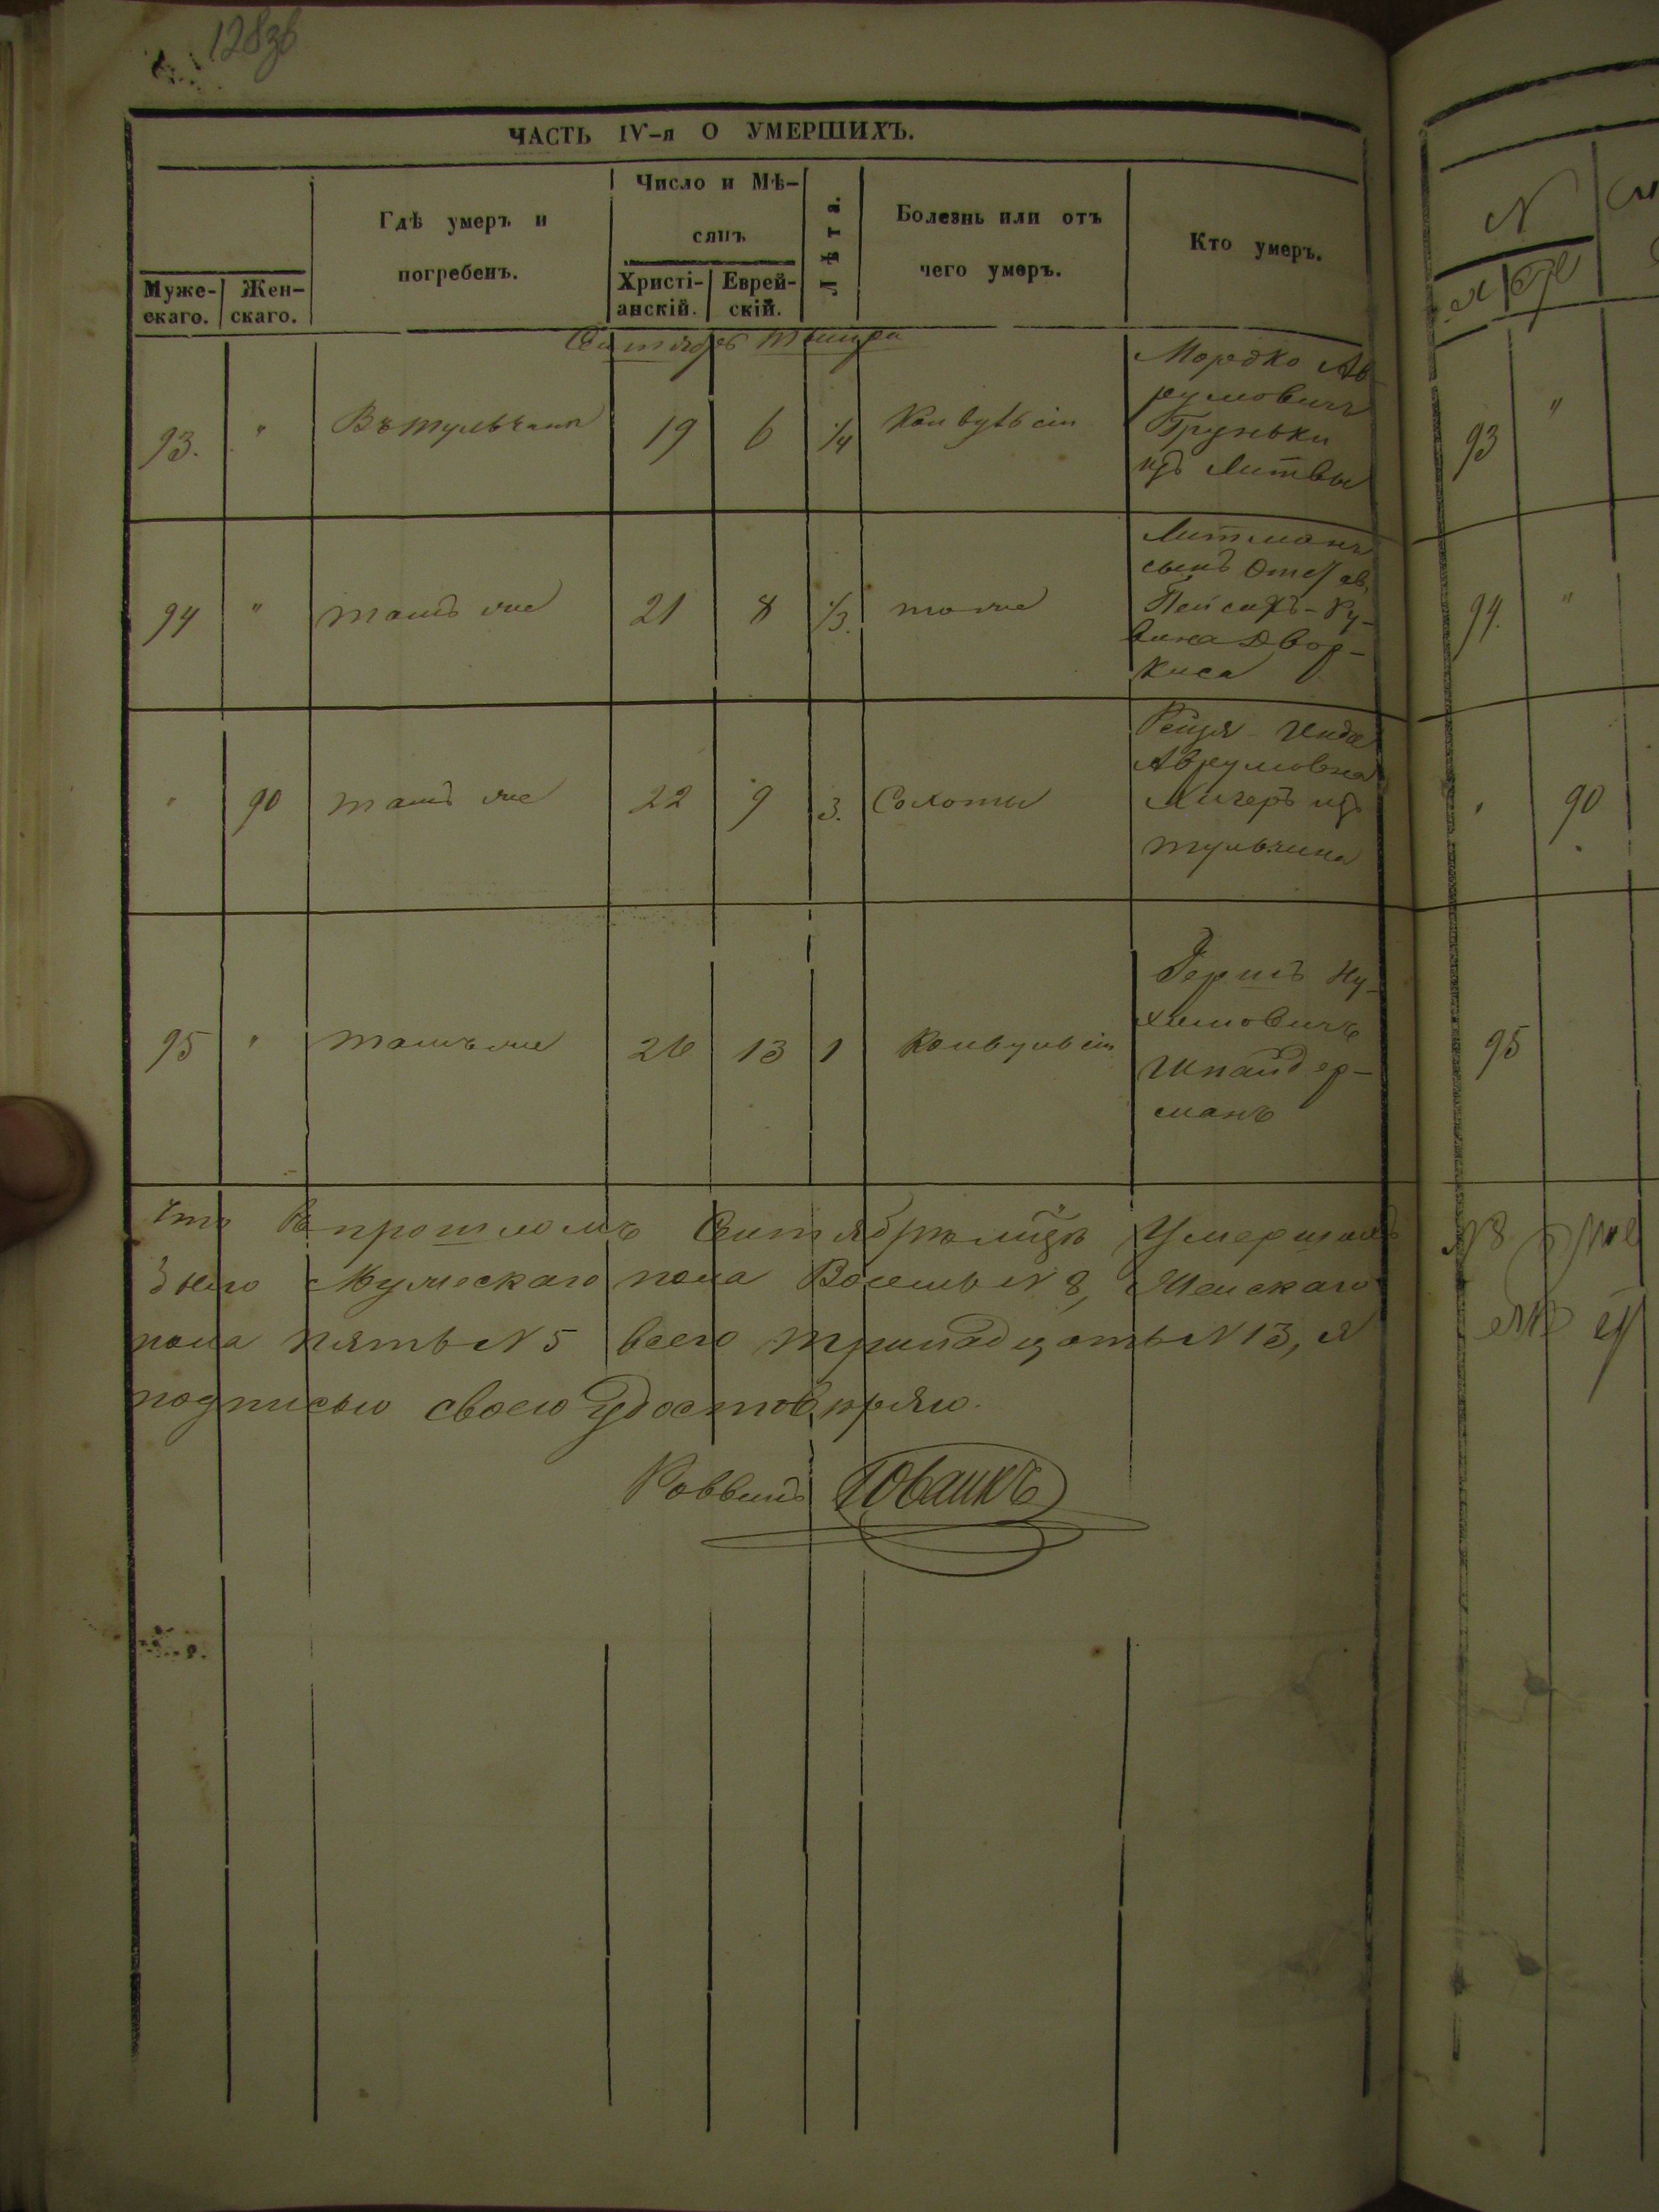 128
ЧАСТЬ IV-я О УМЕРШИХЪ.
Муже-
скаго.
Жен-
скаго.
Гдѣ умеръ и
погребенъ.
Число и Мѣ-
сяцъ
Христі-
анскій.
Еврей-
скій.
Лѣта.
Болезнь или отъ
чего умеръ.
Кто умеръ.
Сентябрь Тишри
93. " Въ Тульчинѣ 19 6 1/4 Конвульсіи
Мордко Ав-
румовичъ
Груньки
изъ Литвы
94 " тамъ же 21 8 1/3. тоже
Литманъ
сынъ
Пейсахъ-Ру-
вина Двор-
киса
" 90 тамъ же 22 9 3. Сохоты
Рейзя Инда
Аврумовна
Кичеръ изъ
Тульчина
95 " тамъ же 26 13 1 Конвульсіи
Гершъ Ну-
химовичъ
Шпайдер-
манъ
Что въ прошломъ Сентябрѣ м-цѣ Умершихъ
было Мужескаго пола Восемь N 8, Женскаго
пола пять N 5 всего тринадцать N 13, я
подписью своею Удостовѣряю.
Раввинъ
N
М Ж
93 "
94. "
" 90
95
N 8